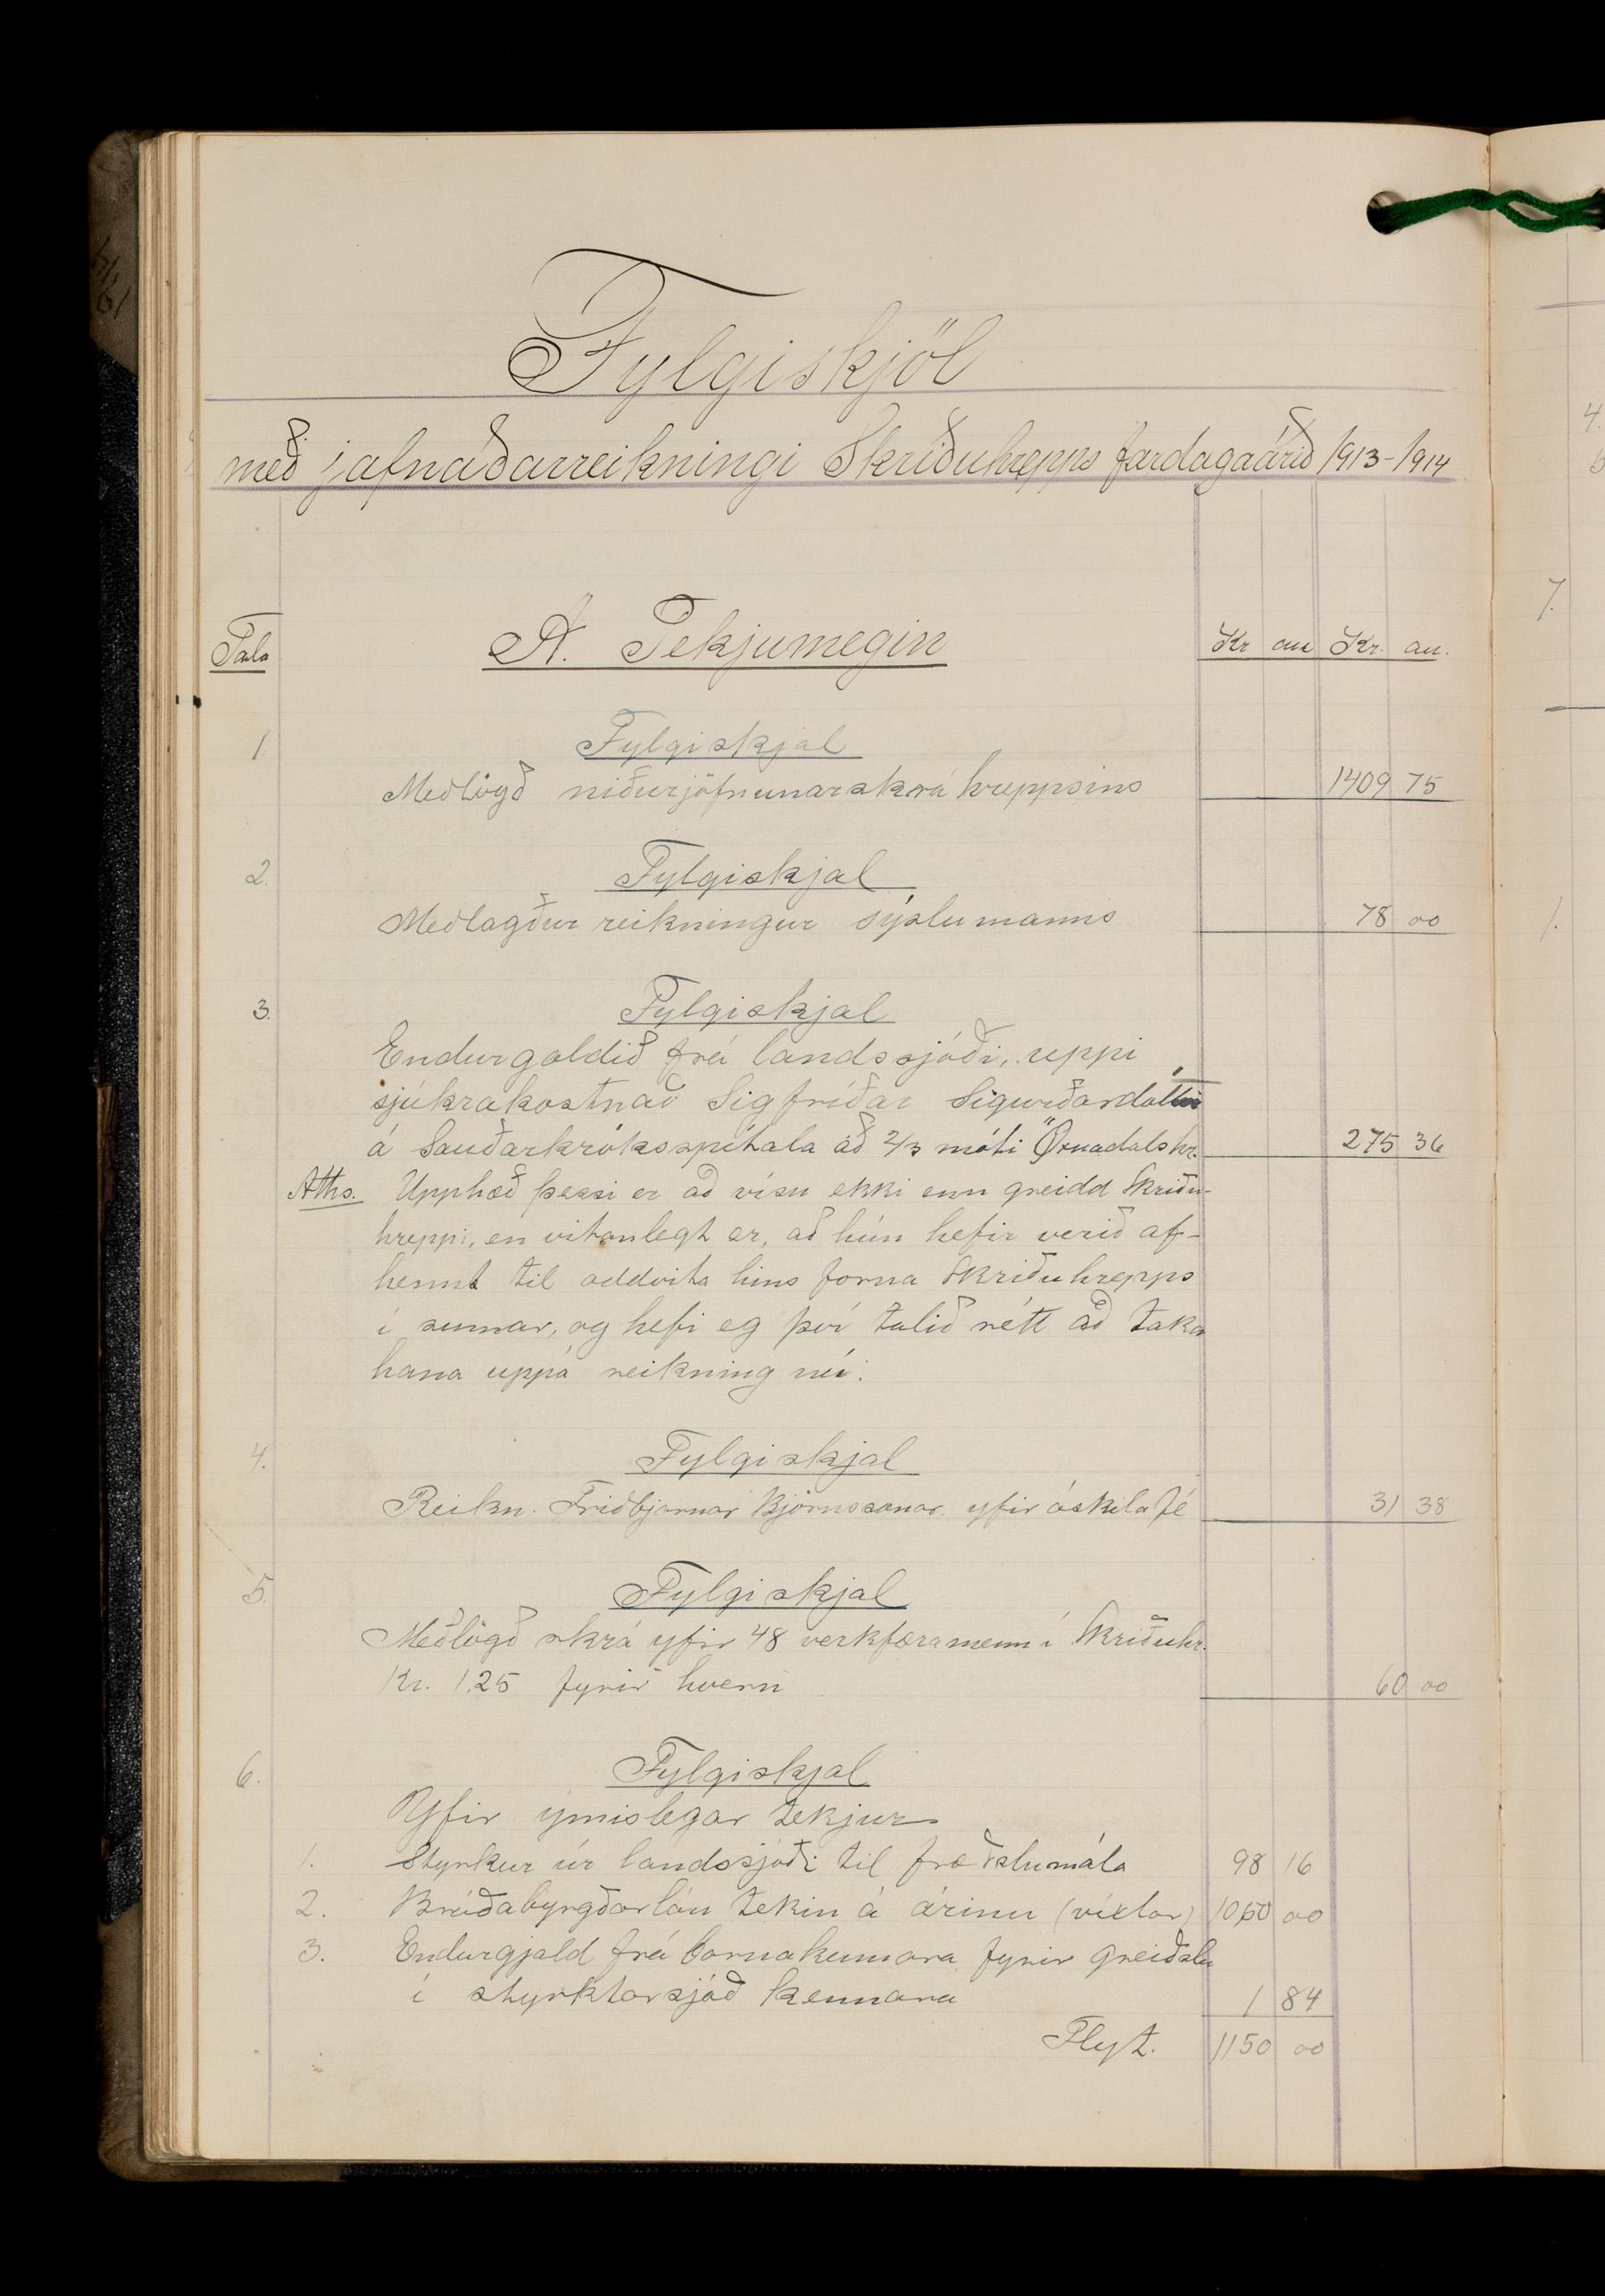 Fylgiskjöl
með jafnaðarreikningi Skriðuhrepps fardagaárið 1913-1914
Tala A. Tekjumegin Kr au Kr. au.
1. Fylgiskjal
Meðlögð niðurjöfnunarskrá hreppsins 1409 75
2. Fylgiskjal
Meðlagður reikningur sýslumanns 78 00
3. Fylgiskjal
Endurgoldið frá landssjóði, uppi
sjúkrakostnað Sigfríðar Sigurðardóttur
á Sauðarkróksspítala að 2/3 móti Öxnadalshr. 275 36
Aths. Upphæð þessi er að vísu ekki enn greidd Skriðu-
hreppi, en vitanlegt er, að hún hefir verið af-
hennt til oddvita hins forna Skriðuhrepps
í sumar, og hefi eg því talið rétt að taka
hana uppá reikning nú.
4. Fylgiskjal
Reikn. Friðbjarnar Björnssonar yfir óskilafé 31 38
5. Fylgiskjal
Meðlögð skrá yfir 48 verkfæramenn í Skriðuhr.
Kr. 1.25 fyrir hvern 60 00
6. Fylgiskjal
Yfir ýmislegar tekjur
1. Styrkur úr landssjóði til fræðslumála 98 16
2. Bráðabyrgðarlán tekin á árinu (víxlar) 1050 00
3. Endurgjald frá barnakennara fyrir greiðslu
í styrktarsjóð kennara 1 84
Flyt. 1150 00
4.
7.
1.